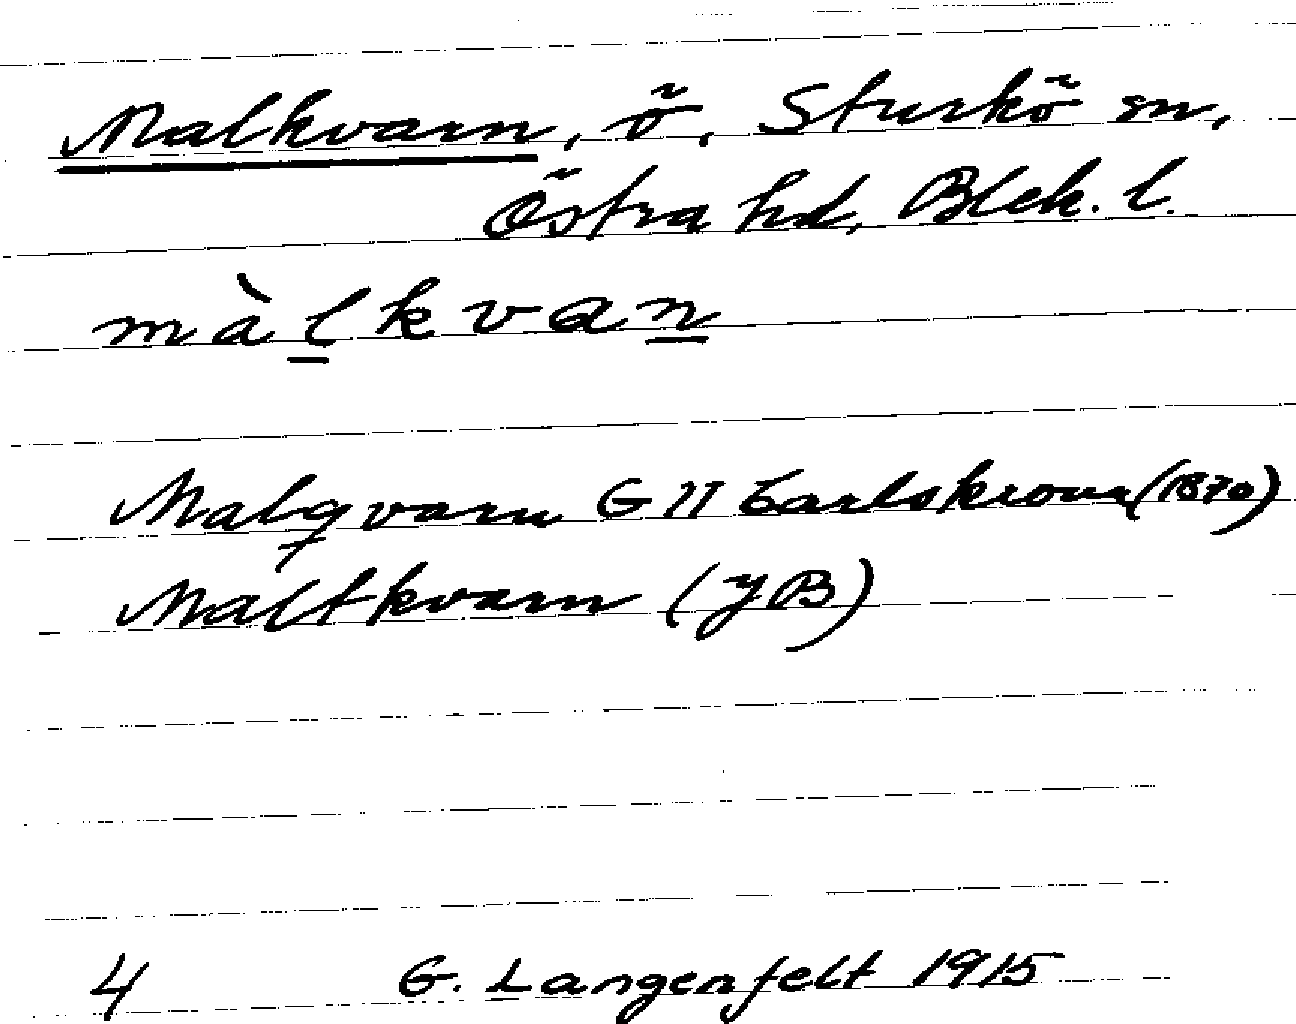 Malkvarn, ö, Sturkö sn,
Östra hd, Blek. l.
màlkvan
Malqvarn G II Carlskrona (1870)
Maltkvarn (JB)
4 G. Langenfelt 1915